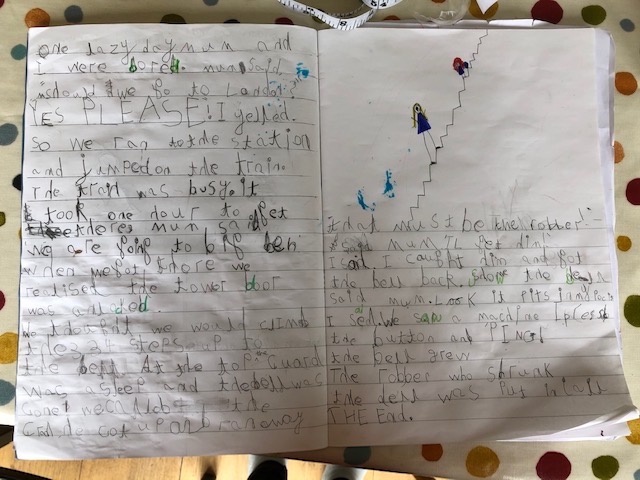 one lazy day mum and
I were bored. mum said
should we go to London?
YES PLEASE! I yelled.
So we ran to the station
and jumped on the train.
The train was busy. it
took one hour to get
there mum said
we are going to big ben
when we got there we
realised the tower dor
was
we would climb
the 334 steps up to
the bell. At the top the Guard
was asleep and the bell was
gone! the
up and ran away
that must be the robber! -
said mum I'll get him!
I said I caught him and got
the bell back.
said mum. Look it fits in
I sed. we saw a machine I press
the button and PING!
the bell grew
The robber who shrunk
the bell was put in jail
THE End.